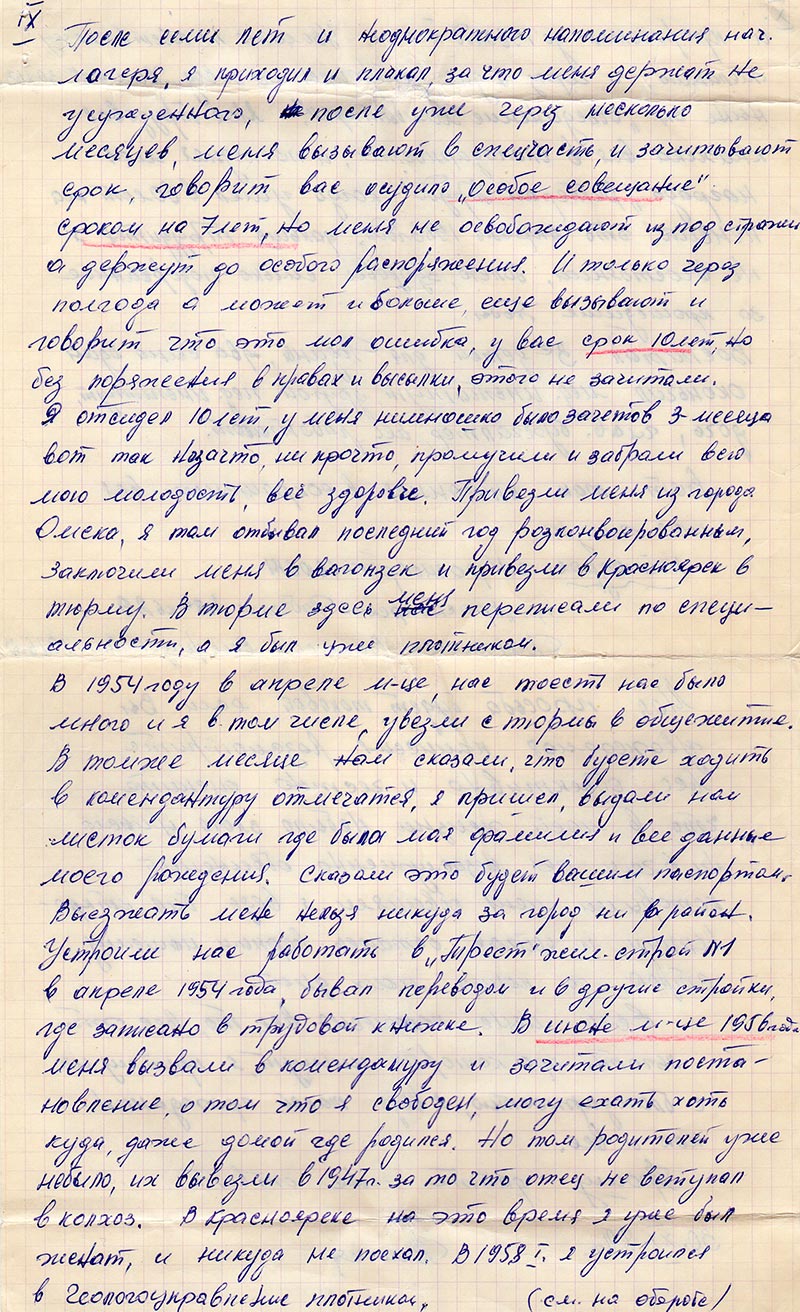 IX
После семи лет и неоднократного напоминания нач.
лагеря, я приходил и плакал, за что меня держат не
усужденного, после уже через несколько
месяцев, меня вызывают в спецчасть, и зачитывают
срок, говорит вас осудило „Особое совещание"
сроком на 7 лет, но меня не освобаждают из под стражи
а держут до особого распоряжения. И только через
полгода а может и больше, еще вызывают и
говорит что это моя ошибка, у вас срок 10 лет, но
без поряжения в правах и высылки, этого не зачитали.
Я отсидел 10 лет, у меня нимношко было зачетов 3-месяца
вот так низачто, ни прочто, промучили и забрали всю
мою молодость, всё здоровье. Привезли меня из города
Омска, я там отбывал последний год розконвоированным,
заключили меня в вагонзек и привезли в Красноярск в
тюрму. В тюрме здесь меня переписали по специ-
альности, а я был уже плотником.
В 1954 году в апреле м-це, нас тоесть нас было
много и я в том числе, увезли с тюрмы в общежитие.
В томже месяце нам сказали, что будете ходить
в комендантуру отмечатся, я пришел, выдали нам
листок бумаги где была мая фамилия и все данные
моего рождения. Сказали это будет вашим паспортам.
Выезжать мене нельзя никуда за город ни в район.
Устроили нас работать в „Трест" жил-строй N1
в апреле 1954 года, бывал переводом и в другие стройки,
где записано в трудовой книжке. В июне м-це 1956 года
меня вызвали в комендатуру и зачитали поста-
новление, о том что я свободен, могу ехать хоть
куда, даже домой где родился. Но там родителей уже
небыло, их вывезли в 1947 г. за то что отец не вступал
в колхоз. В Красноярске на это время я уже был
женат, и никуда не поехал. В 1958 г. я устроился
в Геологоуправление плотником. (см. на обороте)